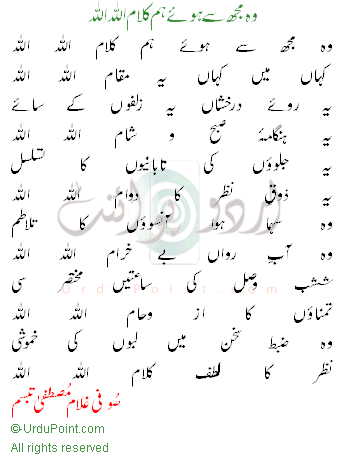 وہ مجھ سے ہوئے ہم کلام اللہ اللہ
وہ مجھ سے ہوئے ہم کلام اللہ اللہ
کہاں میں کہاں یہ مقام اللہ اللہ
یہ روئے درخشاں یہ زلفوں کے سائے
یہ ہنگامۂ صبح و شام اللہ اللہ
یہ جلوؤں کی تابانیوں کا تسلسل
یہ ذوق نظر کا دوام اللہ اللہ
وہ سہما ہوا آنسوؤں کا تلاطم
وہ آب رواں بے خرام اللہ اللہ
شب وصل کی ساعتیں مختصر سی
تمناؤں کا از وحام اللہ اللہ
وہ ضبط سخن میں لبوں کی خموشی
نظر کا لطف کلام اللہ اللہ
صوفی غلام مصطفیٰ تبسم
©UrduPoint.com
All rights reserved
اردو پوائنٹ
UrduPoint.com